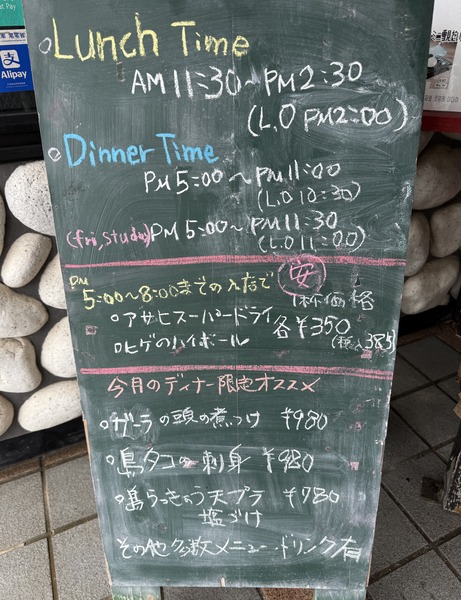 Pay
Alipay
Lunch Time
AM 11:30~PM2:30
(L,O PM2:00)
Dinner Time
PM 5:00~PM11:00
(L.O 10:30)
(fri,studay)PM 5:00~PM11:30
(L.O 11:00)
PM
5:00~8:00までの入店で 安
1杯価格
アサヒスーパードライ
各¥350
ヒゲのハイボール (税込385)
今月のディナー限定オススメ
ガーラの頭の煮つけ ¥980
島タコの刺身 ¥980
島らっきょう天プラ ¥780
塩づけ
その他多数メニュー・ドリンク有